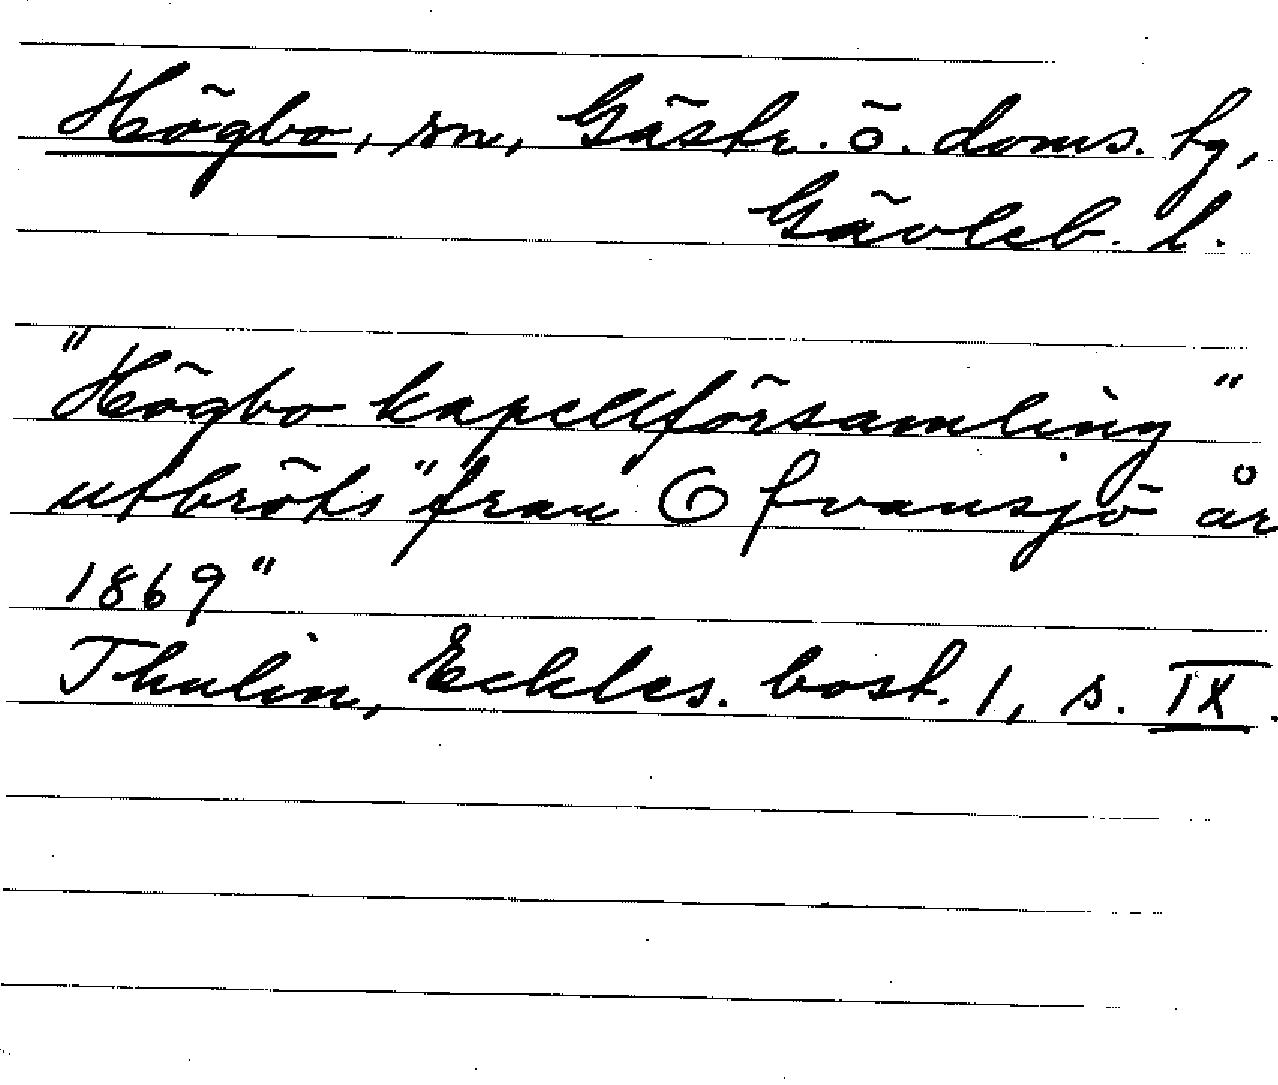 Högbo, sn, Gästr. ö. doms. hg,
Gävleb. l.
"Högbo kapellförsamling"
utbröts "fran Ofvansjö år
1869"
Thulin, Eckles. bost. 1, s. IX.